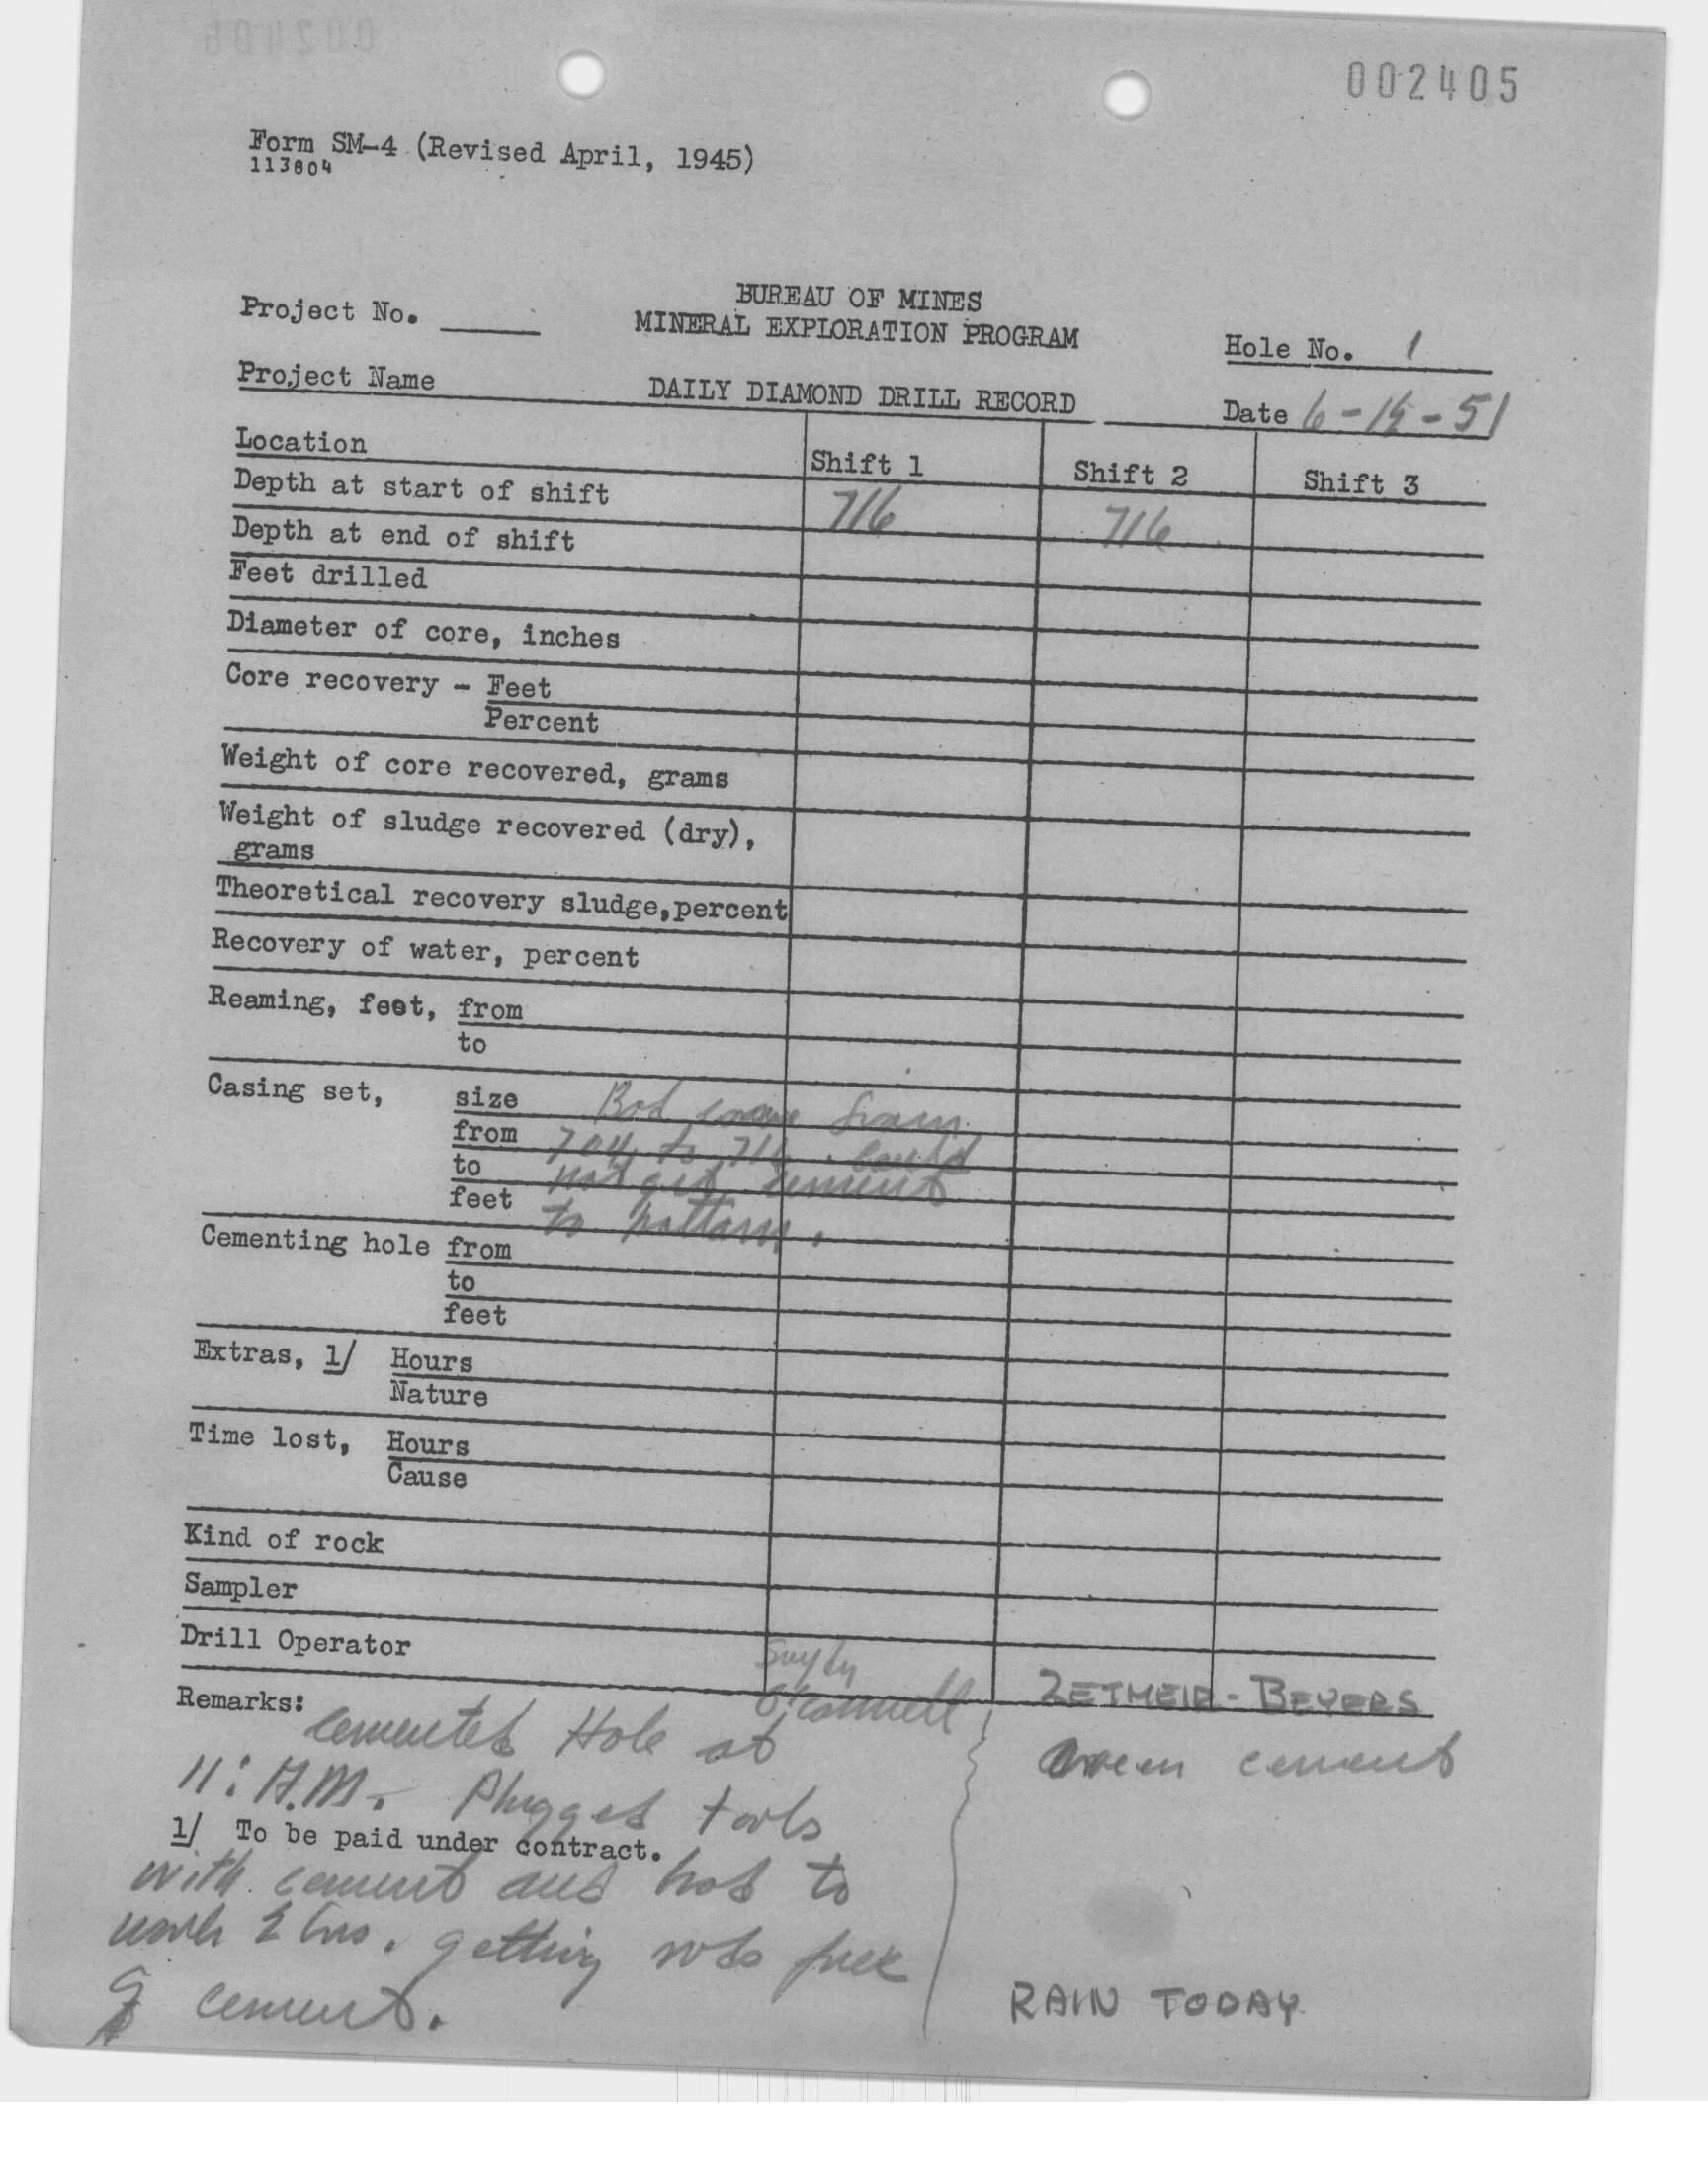 002405
Form SM-4 (Revised April, 1945)
113804
BUREAU OF MINES
Project No.
MINERAL EXPLORATION PROGRAM
Hole No. 1
Project Name
DAILY DIAMOND DRILL RECORD
Date 6-15-51
Location
Shift 1 Shift 2 Shift 3
Depth at start of shift 716 716
Depth at end of shift
Feet drilled
Diameter of core, inches
Core recovery - Feet
Percent
Weight of core recovered, grams
Weight of sludge recovered (dry),
grams
Theoretical recovery sludge,percent
Recovery of water, percent
Reaming, feet, from
to
Casing set, size Bad cave from
from 704 to 716. Could
to not get cement
feet to bottom.
Cementing hole from
to
feet
Extras, 1/ Hours
Nature
Time lost, Hours
Cause
Kind of rock
Sampler
Drill Operator
O'Connell ZETMEIR - BEYERS
Remarks:
Cemented Hole at
cement
11: A.M. Plugged tools
1/ To be paid under contract.
with cement and had to
work 2 hrs. getting rods free
of cement.
RAIN TODAY